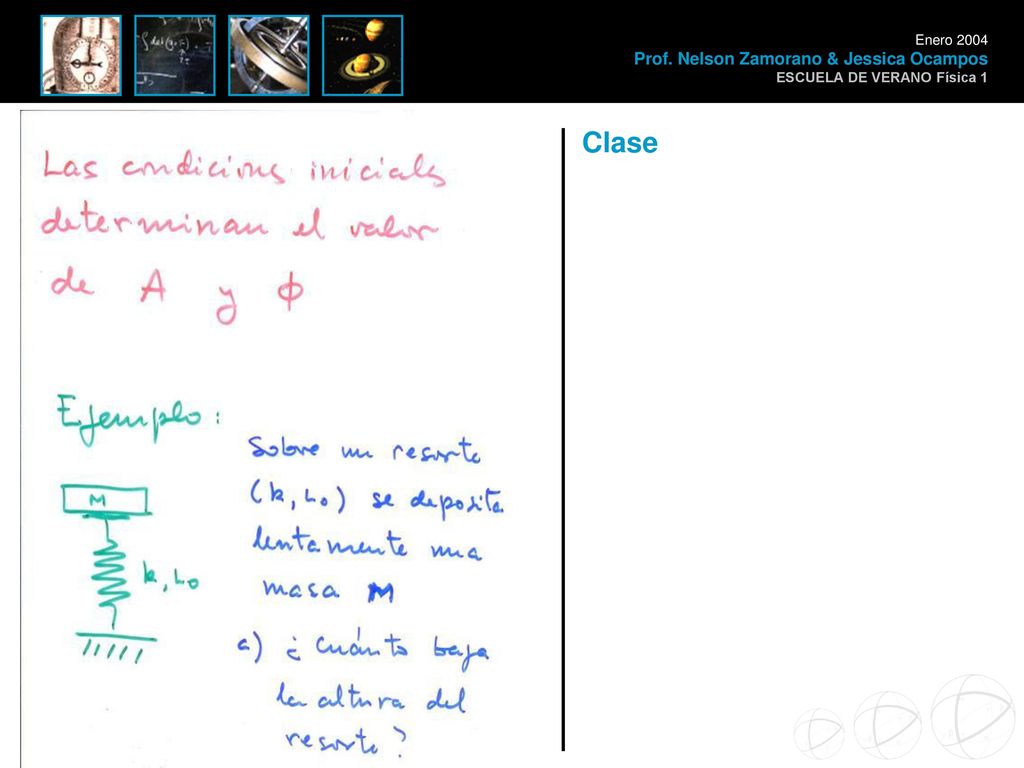 Enero 2004
Prof. Nelson Zamorano & Jessica Ocampos
ESCUELA DE VERANO Física 1
Clase
Las condiciones iniciales
determinan el valor
de A y φ
Ejemplo:
Sobre un resorte
(k, L₀) se deposita
lentamente una
masa M
M
k, L₀
a) ¿Cuánto baja
la altura del
resorte?